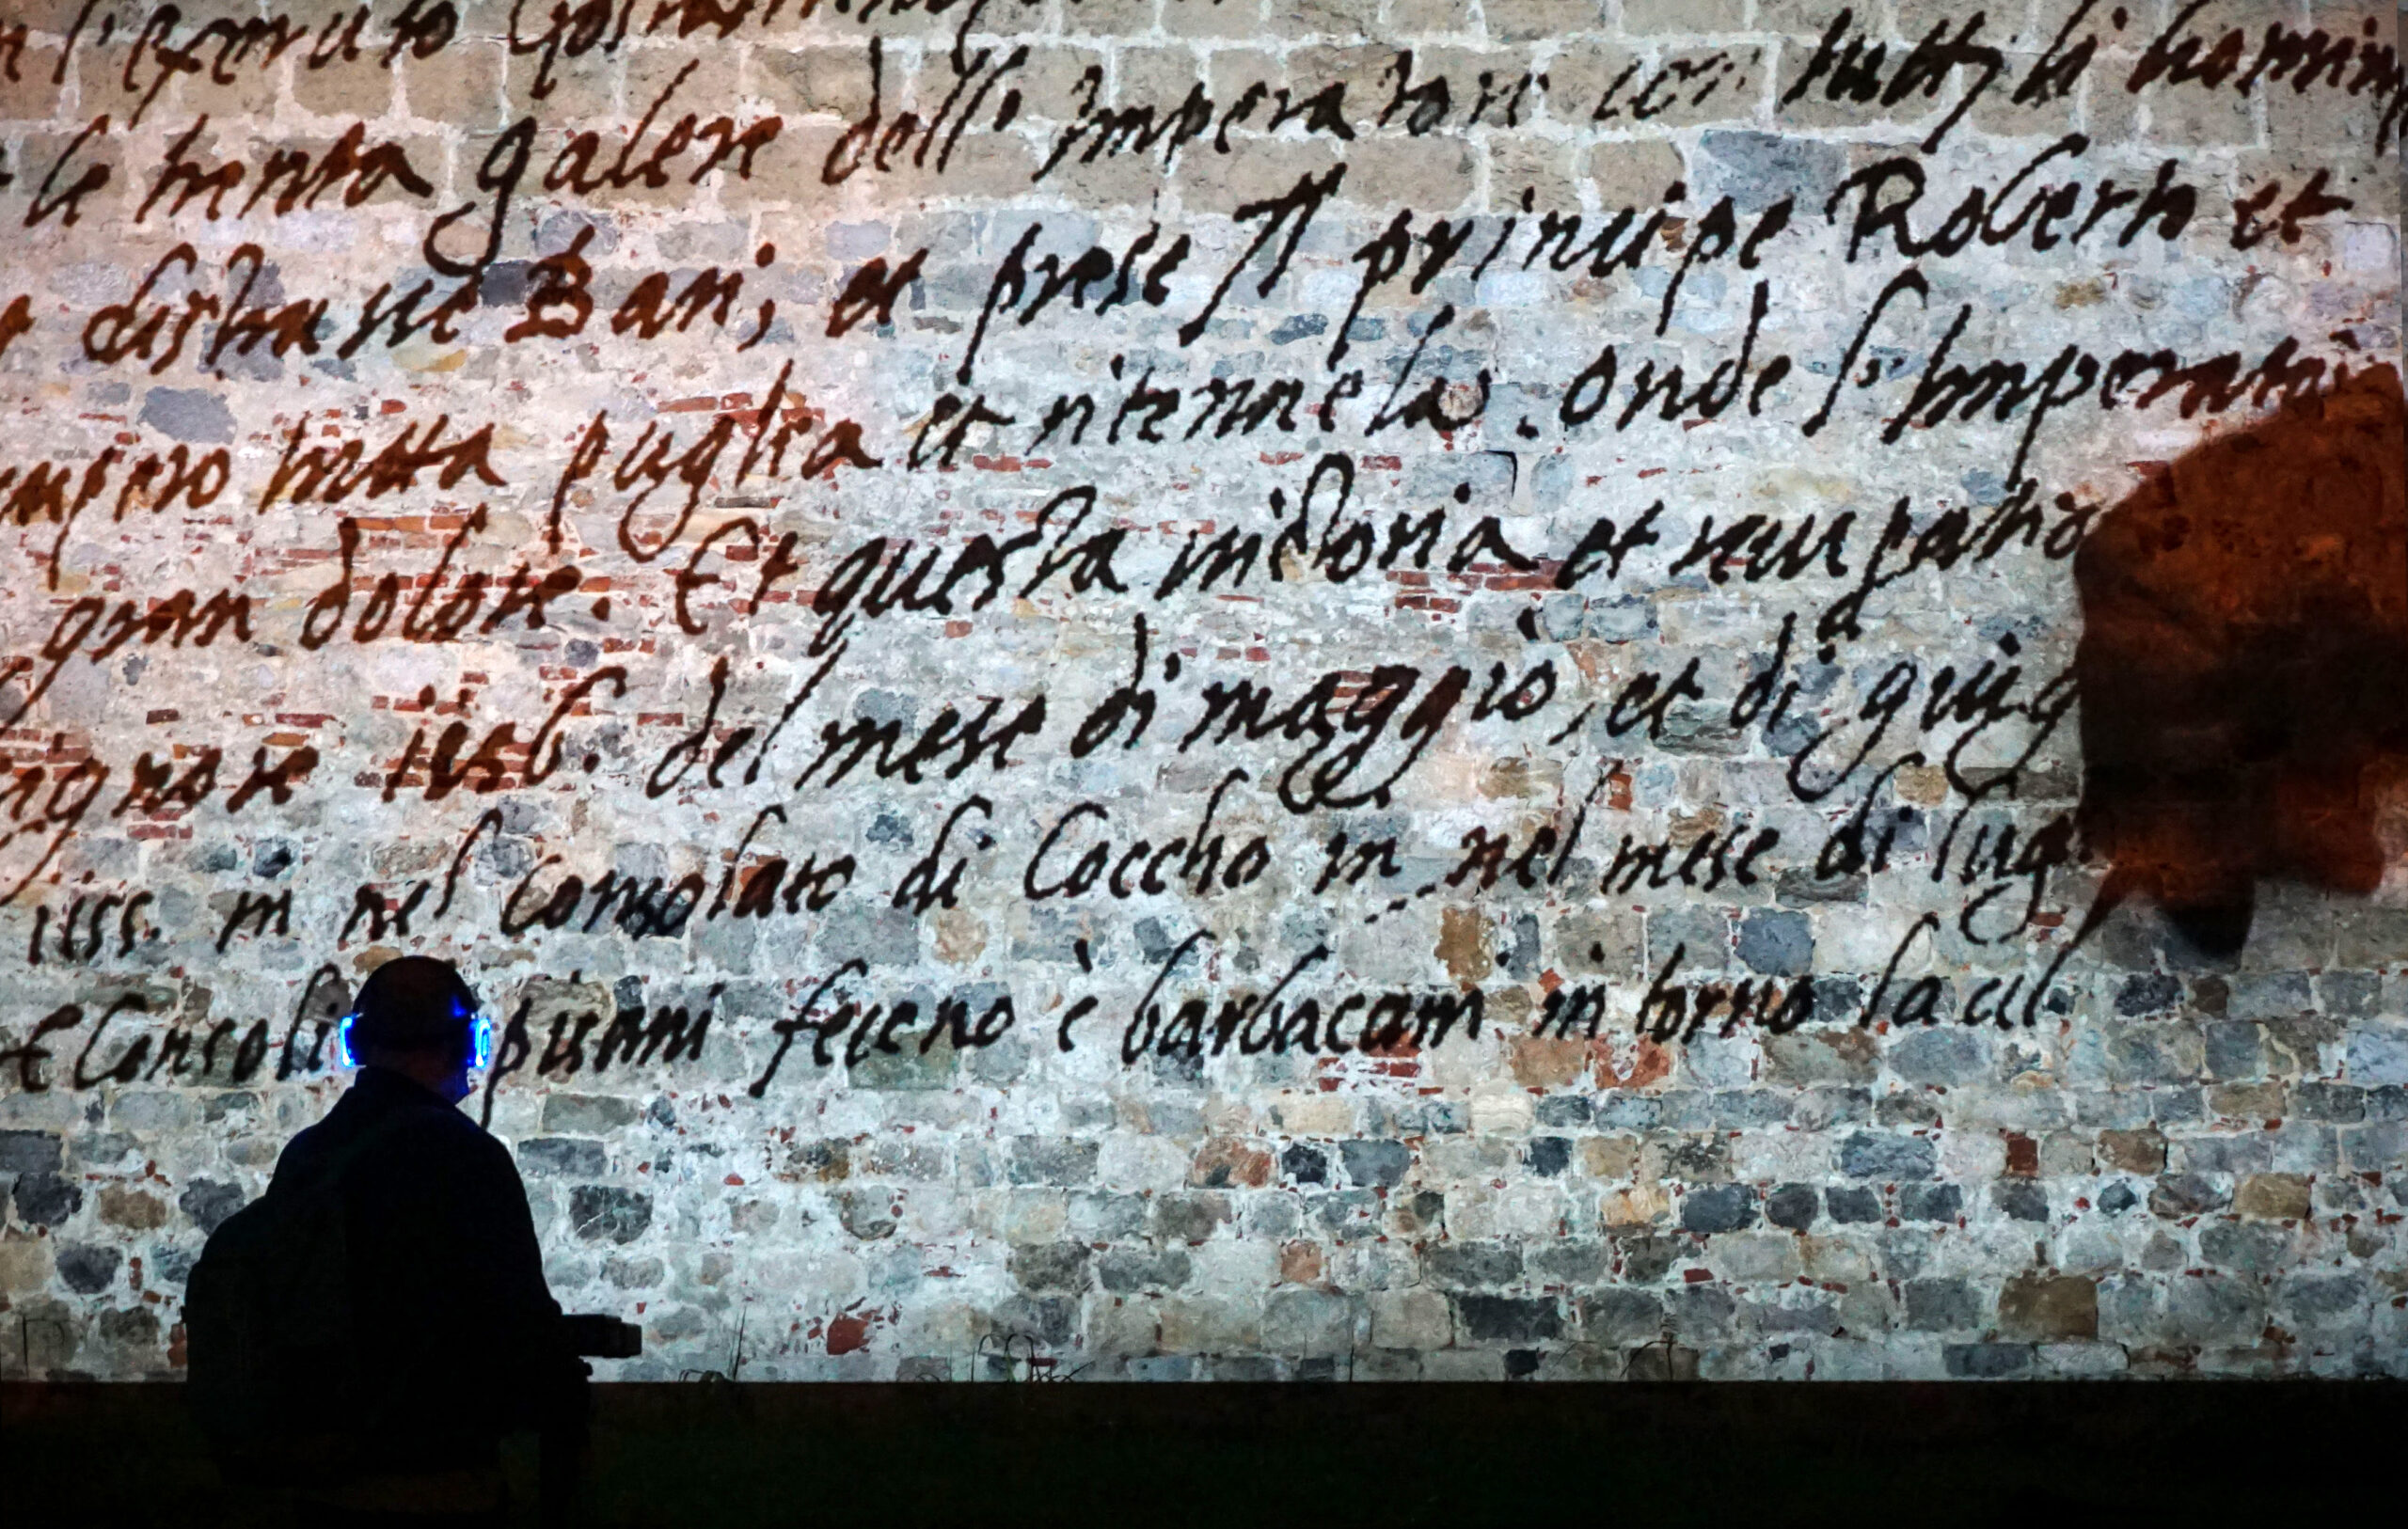 l'exercito
le trenta galere dell' Imperatore con tutti li homini
distrusse Bari; et prese Il principe Roberto et
impero tutta puglia et ritennela. onde l'Imperatore
gran dolore. Et questa vittoria et
signore 1156. del mese di maggio, et di giug
1155. in nel Consolato di Coccho in nel mese di lug
E Consoli pisani feceno è barbacani in torno la cit